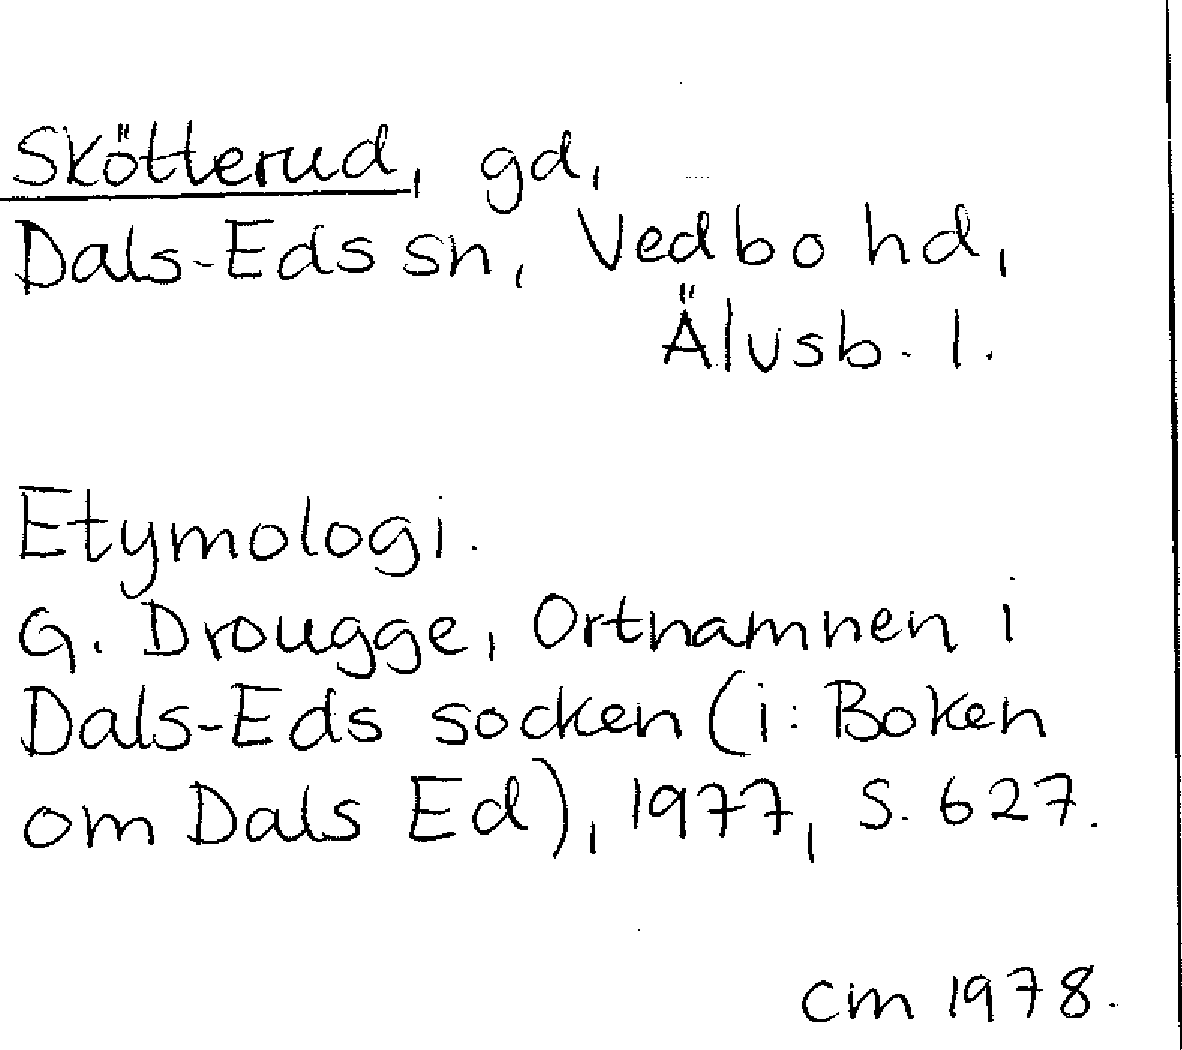 Skötterud, gd,
Dals-Eds sn, Vedbo hd,
Älvsb. l.
Etymologi.
G. Drougge, Ortnamnen i
Dals-Eds socken (i: Boken
om Dals Ed), 1977, s. 627.
cm 1978.